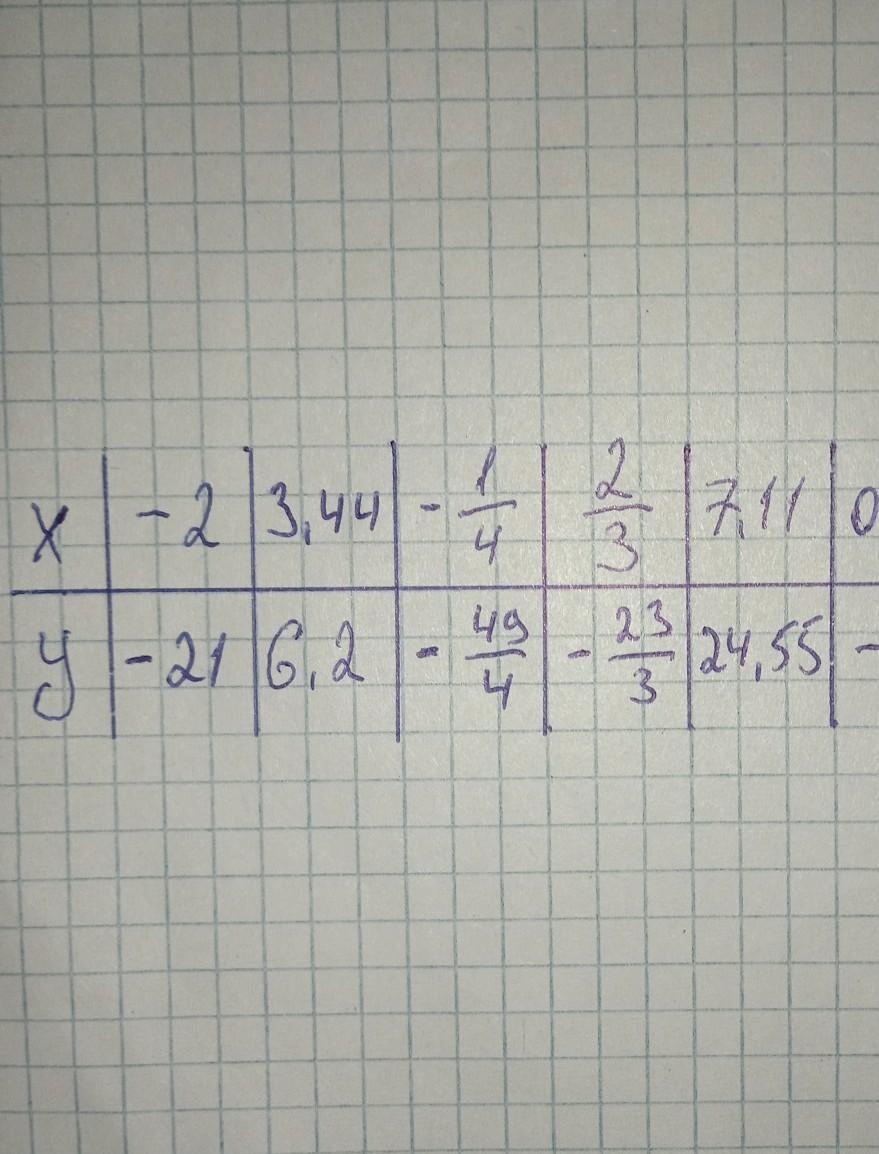 x | -2 | 3,44 | -1/4 | 2/3 | 7,11 | 0
y | -21 | 6,2 | -49/4 | -23/3 | 24,55 | -